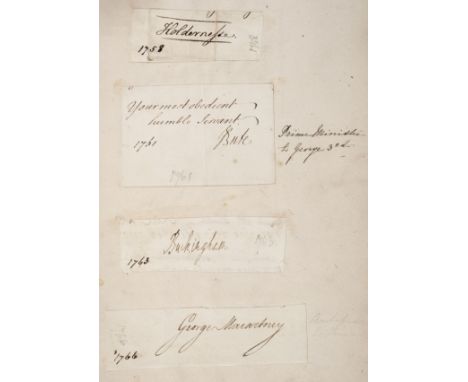 Holdernesse.
1758
1758
Your most obedient
humble Servant
1761 Bute
1761
Prime Minister
to George 3rd
Buckingham
1763
1763
George Macartney
1766